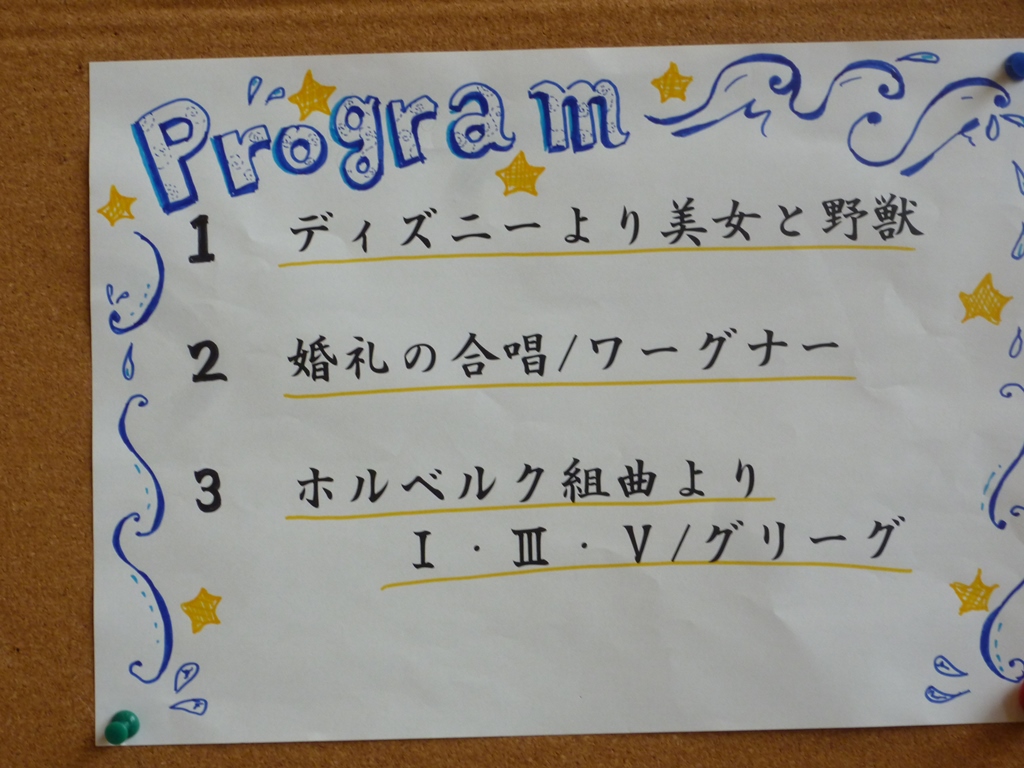 Program
1 ディズニーより美女と野獣
2 婚礼の合唱/ワーグナー
3 ホルベルク組曲より
Ⅰ・Ⅲ・Ⅴ/グリーグ